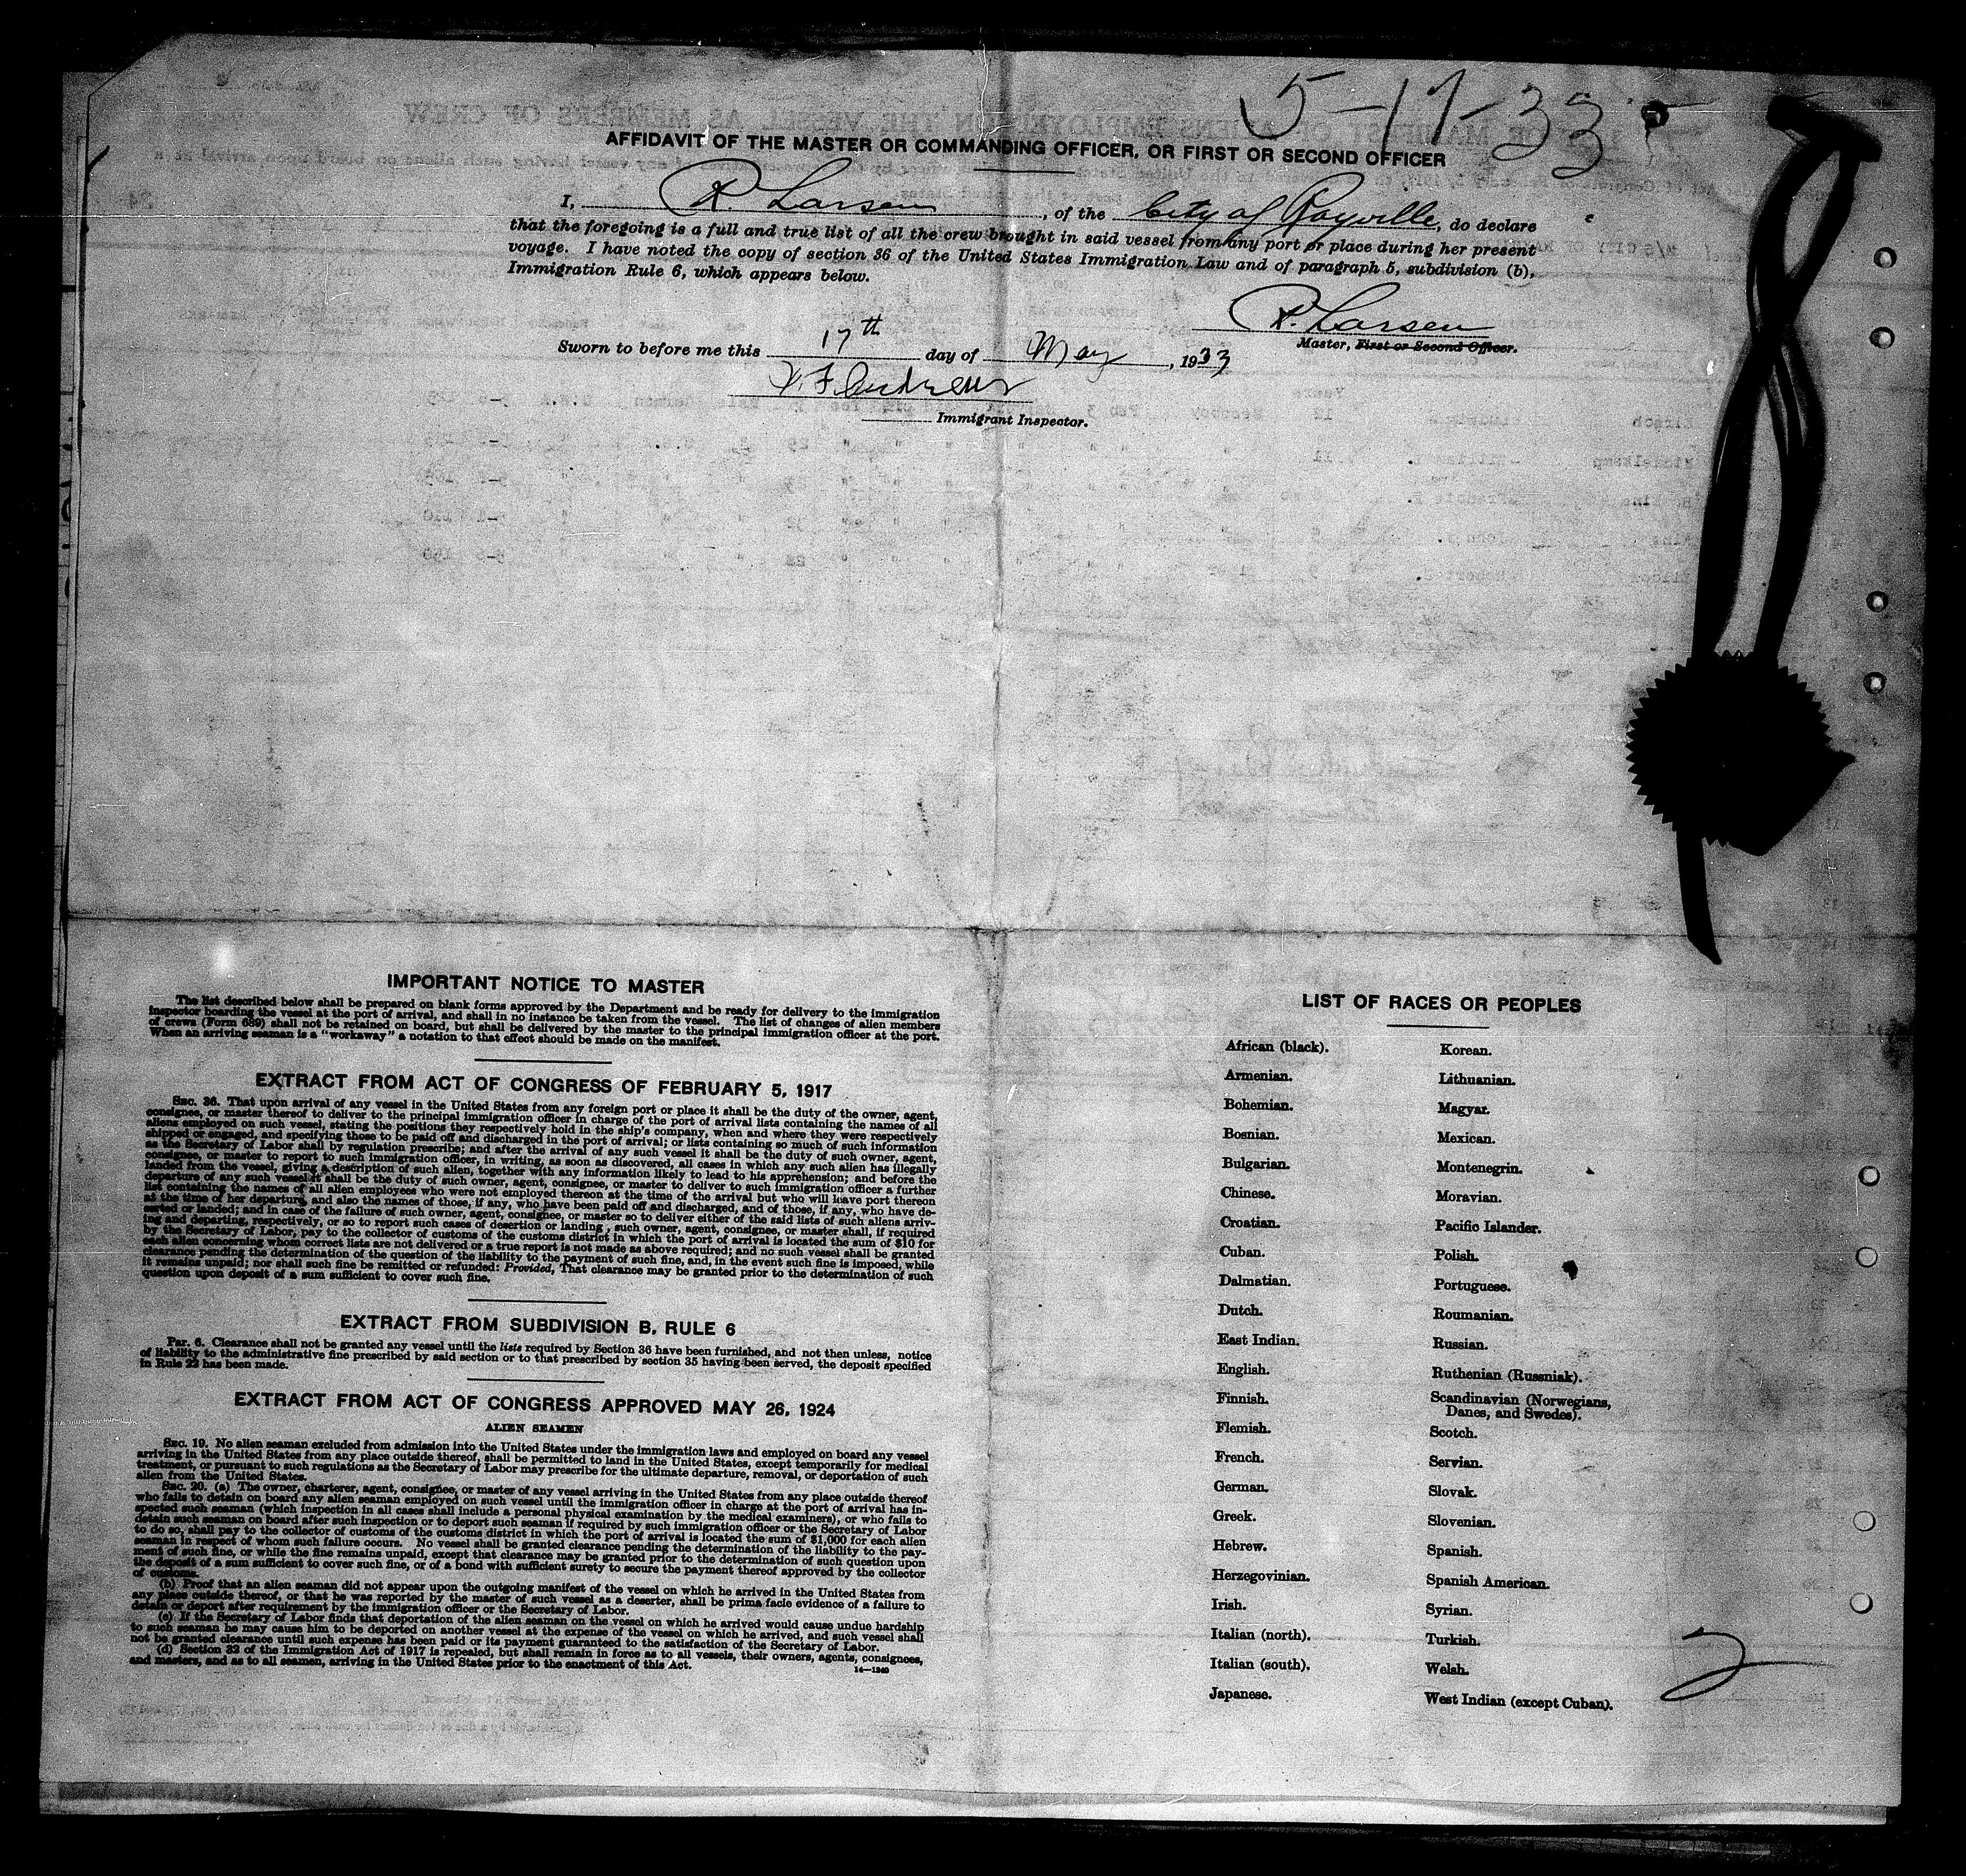 5-17-33
AFFIDAVIT OF THE MASTER OR COMMANDING OFFICER, OR FIRST OR SECOND OFFICER
I, R Larsen, of the City of Rayville, do declare
that the foregoing is a full and true list of all the crew brought in said vessel from any port or place during her present
voyage. I have noted the copy of section 36 of the United States Immigration Law and of paragraph 5, subdivision (b),
Immigration Rule 6, which appears below.
R. Larsen
Master, First or Second Officer.
Sworn to before me this 17th day of May, 1933
Andrews
Immigrant Inspector.
IMPORTANT NOTICE TO MASTER
The list described below shall be prepared on blank forms approved by the Department and be ready for delivery to the immigration
inspector boarding the vessel at the port of arrival, and shall in no instance be taken from the vessel. The list of changes of alien members
of crews (Form 689) shall not be retained on board, but shall be delivered by the master to the principal immigration officer at the port.
When an arriving seaman is a "workaway" a notation to that effect should be made on the manifest.
EXTRACT FROM ACT OF CONGRESS OF FEBRUARY 5, 1917
SEC. 36. That upon arrival of any vessel in the United States from any foreign port or place it shall be the duty of the owner, agent,
consignee, or master thereof to deliver to the principal immigration officer in charge of the port of arrival lists containing the names of all
aliens employed on such vessel, stating the positions they respectively hold in the ship's company, when and where they were respectively
shipped or engaged, and specifying those to be paid off and discharged in the port of arrival; or lists containing so much of such information
as the Secretary of Labor shall by regulation prescribe; and after the arrival of any such vessel it shall be the duty of such owner, agent,
consignee, or master to report to such immigration officer, in writing, as soon as discovered, all cases in which any such alien has illegally
landed from the vessel, giving a description of such alien, together with any information likely to lead to his apprehension; and before the
departure of any such vessel it shall be the duty of such owner, agent, consignee, or master to deliver to such immigration officer a further
list containing the names of all alien employees who were not employed thereon at the time of the arrival but who will leave port thereon
at the time of her departure, and also the names of those, if any, who have been paid off and discharged, and of those, if any, who have de-
serted or landed; and in case of the failure of such owner, agent, consignee, or master so to deliver either of the said lists of such aliens arriv-
ing and departing, respectively, or so to report such cases of desertion or landing, such owner, agent, consignee, or master shall, if required
by the Secretary of Labor, pay to the collector of customs of the customs district in which the port of arrival is located the sum of $10 for
each alien concerning whom correct lists are not delivered or a true report is not made as above required; and no such vessel shall be granted
clearance pending the determination of the question of the liability to the payment of such fine, and, in the event such fine is imposed, while
it remains unpaid; nor shall such fine be remitted or refunded: Provided, That clearance may be granted prior to the determination of such
question upon deposit of a sum sufficient to cover such fine.
EXTRACT FROM SUBDIVISION B, RULE 6
Par. 6. Clearance shall not be granted any vessel until the lists required by Section 36 have been furnished, and not then unless, notice
of liability to the administrative fine prescribed by said section or to that prescribed by section 35 having been served, the deposit specified
in Rule 22 has been made.
EXTRACT FROM ACT OF CONGRESS APPROVED MAY 26, 1924
ALIEN SEAMEN
SEC. 19. No alien seaman excluded from admission into the United States under the immigration laws and employed on board any vessel
arriving in the United States from any place outside thereof, shall be permitted to land in the United States, except temporarily for medical
treatment, or pursuant to such regulations as the Secretary of Labor may prescribe for the ultimate departure, removal, or deportation of such
alien from the United States.
SEC. 20. (a) The owner, charterer, agent, consignee, or master of any vessel arriving in the United States from any place outside thereof
who fails to detain on board any alien seaman employed on such vessel until the immigration officer in charge at the port of arrival has in-
spected such seaman (which inspection in all cases shall include a personal physical examination by the medical examiners), or who fails to
detain such seaman on board after such inspection or to deport such seaman if required by such immigration officer or the Secretary of Labor
to do so, shall pay to the collector of customs of the customs district in which the port of arrival is located the sum of $1,000 for each alien
seaman in respect of whom such failure occurs. No vessel shall be granted clearance pending the determination of the liability to the pay-
ment of such fine, or while the fine remains unpaid, except that clearance may be granted prior to the determination of such question upon
the deposit of a sum sufficient to cover such fine, or of a bond with sufficient surety to secure the payment thereof approved by the collector
of customs.
(b) Proof that an alien seaman did not appear upon the outgoing manifest of the vessel on which he arrived in the United States from
any place outside thereof, or that he was reported by the master of such vessel as a deserter, shall be prima facie evidence of a failure to
detain or deport after requirement by the immigration officer or the Secretary of Labor.
(c) If the Secretary of Labor finds that deportation of the alien seaman on the vessel on which he arrived would cause undue hardship
to such seaman he may cause him to be deported on another vessel at the expense of the vessel on which he arrived, and such vessel shall
not be granted clearance until such expense has been paid or its payment guaranteed to the satisfaction of the Secretary of Labor.
(d) Section 32 of the Immigration Act of 1917 is repealed, but shall remain in force as to all vessels, their owners, agents, consignees,
and masters, and as to all seamen, arriving in the United States prior to the enactment of this Act.
14—1240
LIST OF RACES OR PEOPLES
African (black).
Armenian.
Bohemian.
Bosnian.
Bulgarian.
Chinese.
Croatian.
Cuban.
Dalmatian.
Dutch.
East Indian.
English.
Finnish.
Flemish.
French.
German.
Greek.
Hebrew.
Herzegovinian.
Irish.
Italian (north).
Italian (south).
Japanese.
Korean.
Lithuanian.
Magyar.
Mexican.
Montenegrin.
Moravian.
Pacific Islander.
Polish.
Portuguese.
Roumanian.
Russian.
Ruthenian (Russniak).
Scandinavian (Norwegians,
Danes, and Swedes).
Scotch.
Servian.
Slovak.
Slovenian.
Spanish.
Spanish American.
Syrian.
Turkish.
Welsh.
West Indian (except Cuban).
2